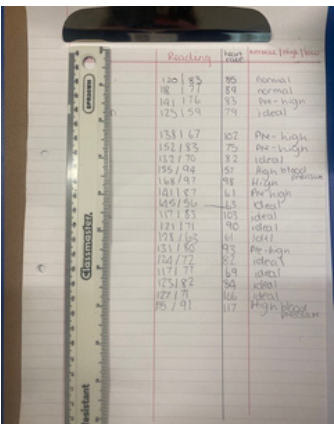 Reading heart rate normal/high/low
120/83 85 normal
118/77 89 normal
141/76 83 Pre-high
125/59 79 ideal
138/67 102 Pre-high
152/83 75 Pre-high
132/70 82 ideal
155/94 57 High blood pressure
168/97 98 High
141/87 61 Pre high
145/56 63 ideal
117/83 103 ideal
121/71 90 ideal
128/63 61 ideal
133/80 93 Pre-high
124/72 82 ideal
117/77 69 ideal
123/82 84 ideal
127/71 106 ideal
/91 117 High blood pressure
Classmaster.
esistant